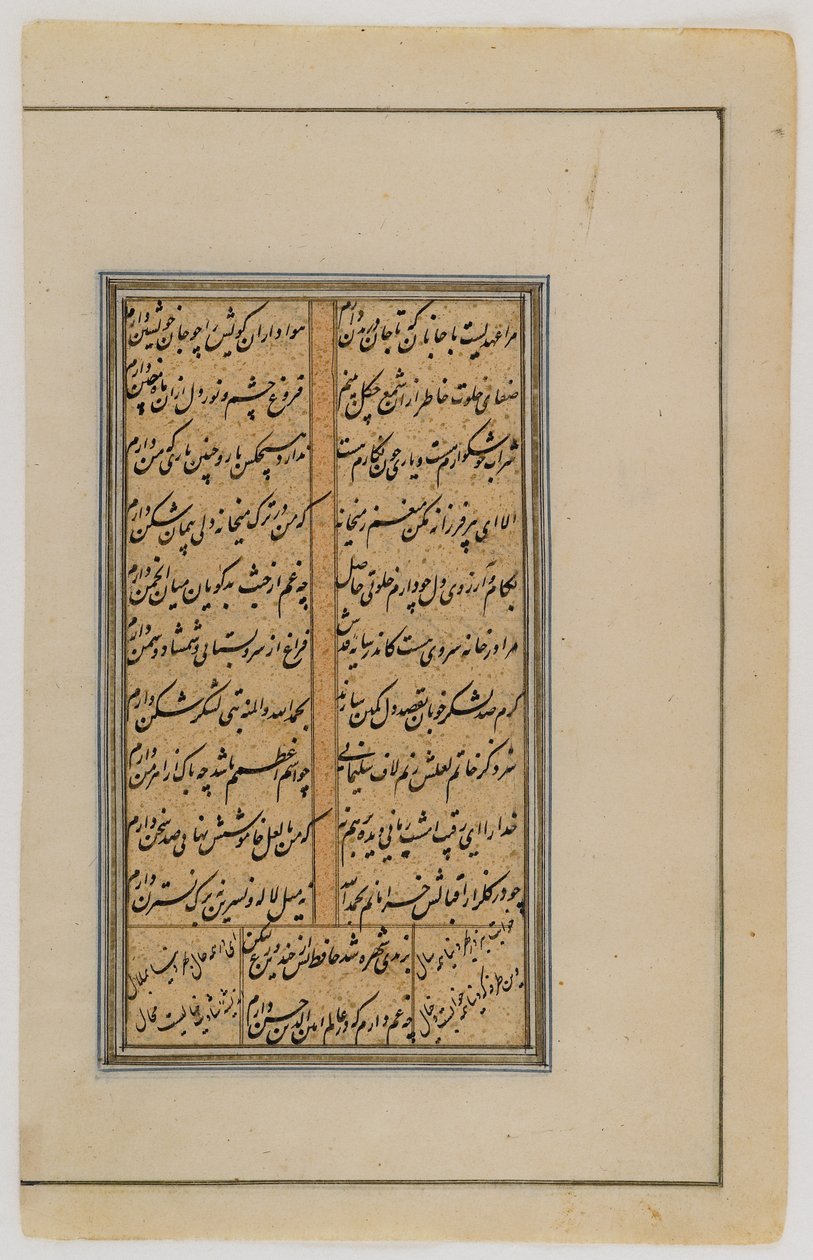 مرا عهدیست با جانان که تا جان در بدن دارم
هواداران کویش را چو جان خویشتن دارم
صفای خلوت خاطر از آن شمع چگل بینم
فروغ چشم و نور دل از آن ماه ختن دارم
شراب خوشگوارم هست و یاری چون نگارم هست
ندارد هیچکس یار و چنین یاری که من دارم
الا ای پیر فرزانه مکن منعم ز میخانه
که من در ترک میخانه دلی پیمان شکن دارم
بکام و آرزوی دل چو دارم خلوتی حاصل
چه غم از خبث بدگویان میان انجمن دارم
مرا در خانه سروی هست کاندر سایه قدش
فراغ از سرو بستانی و شمشاد و سمن دارم
گرم صد لشکر خوبان بقصد دل کمین سازند
بحمدالله والمنه بتی لشکر شکن دارم
سزد کز خاتم لعلش زنم لاف سلیمانی
چو اسم اعظمم باشد چه باک از اهرمن دارم
خدارا ای رقیب امشب زمانی دیده بر هم نه
که من با لعل خاموشش نهانی صد سخن دارم
چو در گلزار اقبالش خرامانم بحمدالله
نه میل لاله و نسرین نه برگ نسترن دارم
برندی شهره شد حافظ پس از چندین ورع لیکن
چه غم دارم که در عالم امین الدین حسن دارم
وین طرفه که دنیا همه خوابیست و خیال
خیالیست محال